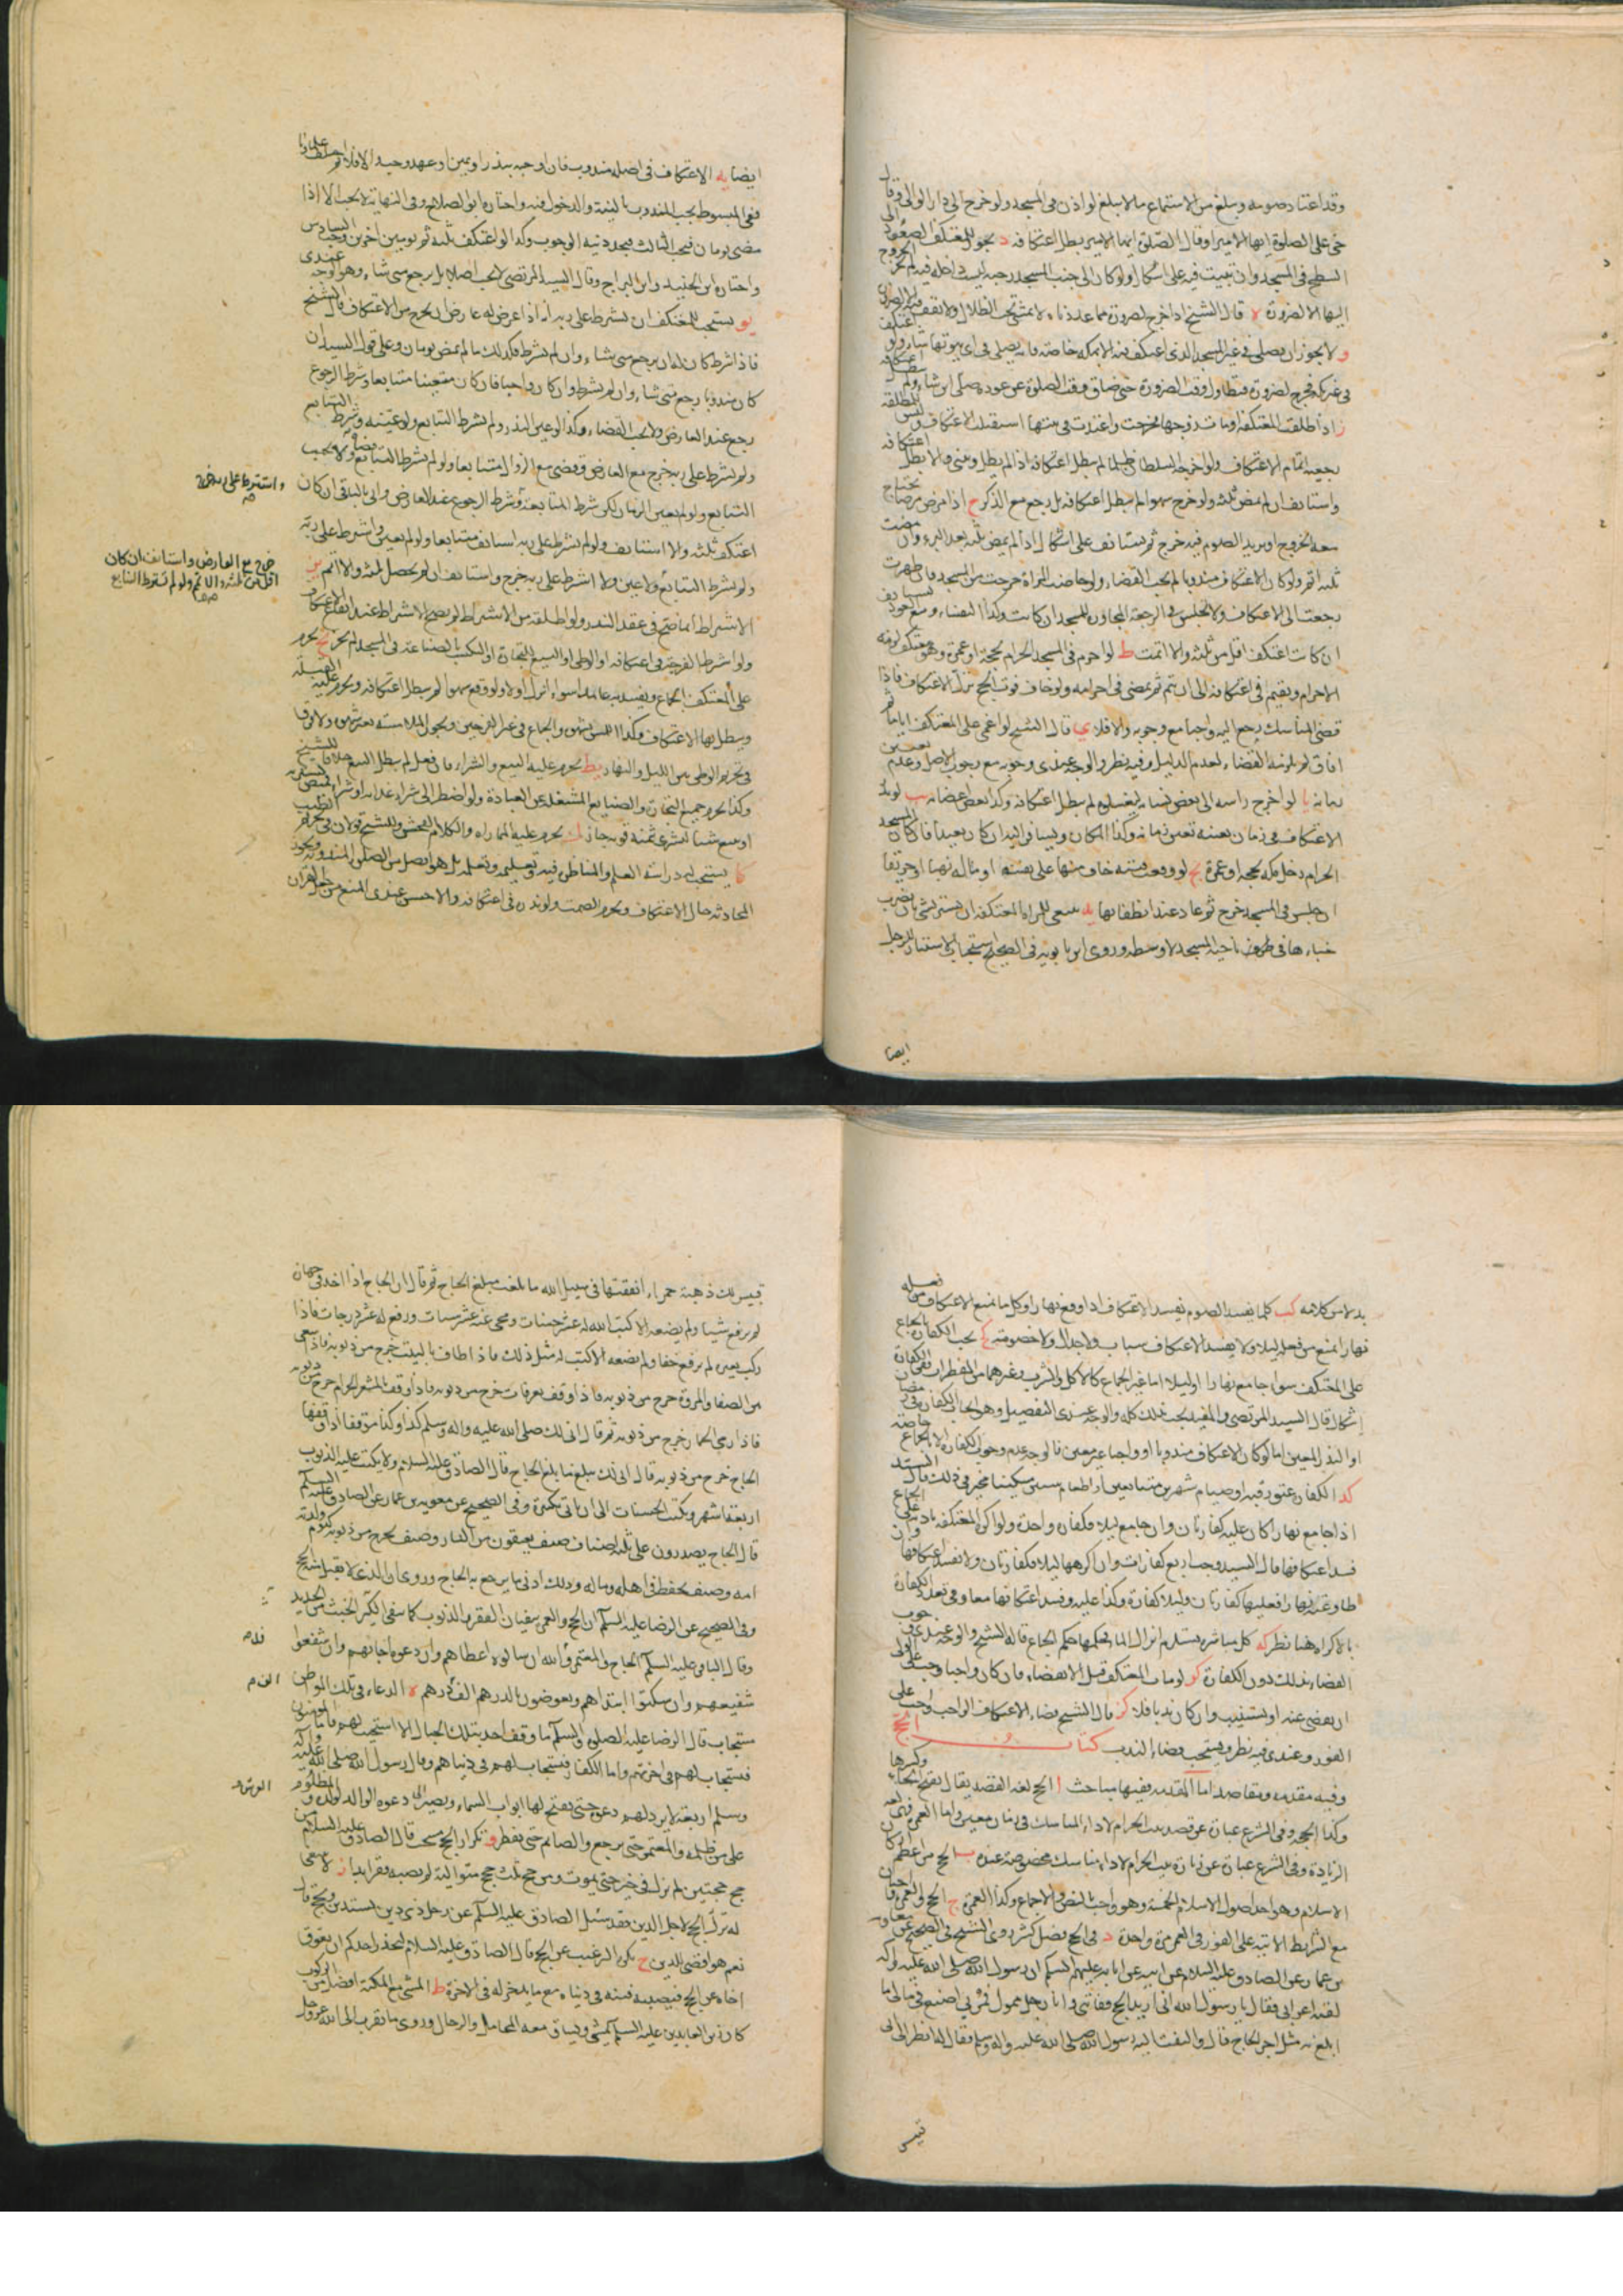 وقد اعتاد صومه ويبلغ من الاستماع ما لا يبلغ لو اذن فى المسجد ولو خرج الى دار الوالى وقال
حى على الصلوة ايها الامير او قال الصلوة ايها الامير بطل اعتكافه د يجوز للمعتكف الصعود الى
السطح فى المسجد وان يبيت فيه على اشكال ولو كان الى جنب المسجد رحبة ليست داخلة فيه لم يجز الخروج
اليها الا لضرورة ه قال الشيخ اذا خرج لضرورة مما عددناه لا يمشى تحت الظلال ولا يقف فيه الا لضرورة
و لا يجوز ان يصلى فى غير المسجد الذى اعتكف فيه الا بمكة خاصة فانه يصلى فى اى بيوتها شاء ولو اعتكف
فى غير مكة فخرج لضرورة فتطاول وقت الضرورة حتى ضاق وقت الصلوة عن عوده صلى اين شاء ولم يبطل اعتكافه
ز اذا طلقت المعتكفة او مات زوجها فخرجت واعتدت فى بيتها استقبلت الاعتكاف وليس للمطلقة
رجعية اتمام الاعتكاف ولو اخرجه السلطان ظلما لم يبطل اعتكافه اذا لم يطل وبنى والا بطل اعتكافه
واستانف ان لم يمض ثلثة ولو خرج سهوا لم يبطل اعتكافه بل رجع مع الذكر ح اذا مرض مرضا يحتاج
معه الخروج او يريد الصلوم فيه خرج ثم يستانف على اشكال اذا لم يمض ثلثة بعد البرء وان مضت
ثلثة اتم ولو كان الاعتكاف مندوبا لم يجب القضاء ولو حاضت المراة خرجت من المسجد فان طهرت
رجعت الى الاعتكاف ولا تجلس فى الرحبة المجاورة للمسجد ان كانت وكذا النفساء ومع العود تستانف
ان كانت اعتكفت اقل من ثلثة والا اتمت ط لو احرم فى المسجد الحرام بحجة او عمرة وهو معتكف لزمه
الاحرام ويقيم فى اعتكافه الى ان يتم ثم يمضى فى احرامه ولو خاف فوت الحج ترك الاعتكاف فاذا
قضى المناسك رجع اليه واجبا مع وجوبه والا فلا ى قال الشيخ لو اغمى على المعتكف اياما ثم
افاق لم يلزمه القضاء لعدم الدليل وفيه نظر والوجه عندى وجوبه مع وجوب الاصل وعدم تعيين
زمانه يا لو اخرج راسه الى بعض نسائه ليغسلوه لم يبطل اعتكافه وكذا بعض اعضائه يب لو نذر
الاعتكاف فى زمان بعينه تعين زمانه وكذا المكان ويسافر اليه ان كان بعيدا فان كان المسجد
الحرام دخل مكة بحجة او عمرة يج لو وقعت فتنة خاف منها على نفسه او ماله نهبا او حريقا
ان جلس فى المسجد خرج ثم عاد عند انطفائها يد ينبغى للمراة المعتكفة ان تستتر بشئ بان يضرب
خباءها فى طرف ناحية المسجد لا وسطه وروى ابن بابويه فى الصحيح استحباب الاستتار للرجل
ايضا
ايضا يه الاعتكاف فى اصله مندوب فان اوجبه بنذر او يمين او عهد وجب والا فلا ثم اختلف علماؤنا
ففى المبسوط يجب المندوب بالنية والدخول فيه واختاره ابو الصلاح وفى النهاية لا يجب الا اذا
مضى يومان فيجب الثالث فيجدد نية الوجوب وكذا لو اعتكف ثلثة ثم يومين اخرين وجب السادس
واختاره ابن الجنيد وابن البراج وقال السيد المرتضى لا يجب اصلا بل يرجع متى شاء وهو الوجه عندى
يو يستحب للمعتكف ان يشترط على ربه انه اذا عرض له عارض ان يخرج من الاعتكاف قال الشيخ
فاذا شرط كان له ان يرجع متى شاء وان لم يشترط فكذلك ما لم يمض يومان وعلى قول السيد ان
كان مندوبا رجع متى شاء وان لم يشترط وان كان واجبا فان كان متعينا متتابعا وشرط الرجوع
رجع عند العارض ولا يجب القضاء وكذا لو عين النذر ولم يشترط التتابع ولو عينه وشرط التتابع
ولم يشترط على ربه خرج مع العارض وقضى مع الزوال متتابعا ولو لم يشترط التتابع قضاه ولا يجب
التتابع ولو لم يعين الزمان لكن شرط المتابعة وشرط الرجوع فعند العارض واتى بالباقى ان كان
اعتكف ثلثة والا استانف ولو لم يشترط على ربه استانف متتابعا ولو لم يعين واشترط على ربه
ولم يشترط التتابع ولا عين ولا اشترط على ربه خرج واستانف ان لم يحصل ثلثة والا اتم يز
الاشتراط انما يصح فى عقد النذر ولو اطلقه من الاشتراط لم يصح الاشتراط عند ايقاع الاعتكاف
ولو اشترط الفرجة فى اعتكافه او الوطى او البيع للتجارة او التكسب بالصناعة فى المسجد لم يجز يح يحرم
على المعتكف الجماع ويفسد به عامدا سواء انزل او لا ولو وقع سهوا لم يبطل اعتكافه ويحرم عليه القبلة
ويبطل بها الاعتكاف وكذا اللمس بشهوة والجماع فى غير الفرجين ويجوز الملامسة بغير شهوة ولا فرق
فى تحريم الوطى بين الليل والنهار يط يحرم عليه البيع والشراء فان فعل لم يبطل البيع خلافا للشيخ
وكذا يحرم جميع التجارة والصنايع المشغلة عن العبادة ولو اضطر الى شراء غذائه او شراء قميص يستتر به
او بيع شئ ليشترى بثمنه قوته جاز ك يحرم عليه المماراة والكلام الفحش وللشيخ قولان فى تحريم الطيب
كا يستحب له دراسة العلم والمناظرة فيه وتعليمه وتعلمه بل هو افضل من الصلوة المندوبة ويجوز
المحادثة حال الاعتكاف ويحرم الصمت ولو نذره فى اعتكافه والاحسن عندى المنع من جعل القران
واشترط على ربه خرج
خرج مع العارض واستانف ان كان
اقل من ثلثة والا اتم ولو لم يشترط التتابع
بدلا من كلامه كب كلما يفسد الصوم يفسد الاعتكاف اذا وقع نهارا وكل ما يمنع الاعتكاف من فعله
نهارا يمنع من فعله ليلا ولا يفسد الاعتكاف سباب ولا جدال ولا خصومة كج يجب الكفارة بالجماع
على المعتكف سواء جامع نهارا او ليلا اما غير الجماع كالاكل والشرب وغيرهما من المفطرات ففى الكفارة
اشكال قال السيد المرتضى والمفيد يجب بذلك كله والوجه عندى التفصيل وهو ايجاب الكفارة فى رمضان
او النذر المعين اما لو كان الاعتكاف مندوبا او واجبا غير معين فالوجه عدم وجوب الكفارة الا بالجماع خاصة
كد الكفارة عتق رقبة او صيام شهرين متتابعين او اطعام ستين مسكينا مخير فى ذلك قال السيد
اذا جامع نهارا كان عليه كفارتان وان جامع ليلا فكفارة واحدة ولو اكره المعتكفة نهارا على الجماع
فسد اعتكافها قال السيد وجب اربع كفارات وان اكرهها ليلا فكفارتان ولا يفسد اعتكافها وان
طاوعته نهارا فعليها كفارتان وليلا كفارة وكذا عليه وفسد اعتكافهما معا وفى تعدد الكفارة
بالاكراه هنا نظر كه كل مباشرة يستلزم انزال الماء فحكمها حكم الجماع قاله الشيخ والوجه عندى وجوب
القضاء بذلك دون الكفارة كو لو مات المعتكف قبل الانقضاء فان كان واجبا وجب على الولى
ان يقضى عنه او يستنيب وان كان ندبا فلا كز قال الشيخ قضاء الاعتكاف الواجب واجب على
الفور وعندى فيه نظر ويستحب قضاء الندب كتاب الحج
وفيه مقدمة ومقاصد اما المقدمة ففيها مباحث ا الحج لغة القصد يقال بفتح الحاء وكسرها
وكذا الحجة وفى الشرع عبارة عن قصد بيت الحرام لاداء المناسك فى زمان معين واما العمرة فهى لغة
الزيادة وفى الشرع عبارة عن زيارة بيت الحرام لاداء مناسك مخصوصة عنده ب الحج من اعظم اركان
الاسلام وهو احد اصول الاسلام الخمسة وهو واجب بالنص والاجماع وكذا العمرة ج الحج والعمرة واجبان
مع الشرايط الاتية على الفور فى العمر مرة واحدة د فى الحج فضل كثير روى الشيخ فى الصحيح عن معاوية
بن عمار عن الصادق عليه السلام عن ابيه عن ابائه عليهم السلم ان رسول الله صلى الله عليه واله
لقيه اعرابى فقال يا رسول الله انى اريد الحج ففاتنى وانا رجل ممول فمرنى اصنع فى مالى ما
ابلغ به مثل اجر الحاج قال والتفت اليه رسول الله صلى الله عليه واله وسلم فقال له انظر الى ابى
قبيس
قبيس لك ذهبة حمراء انفقتها فى سبيل الله ما بلغت مبلغ الحاج ثم قال ان الحاج اذا اخذ فى جهازه
لم يرفع شيئا ولم يضعه الا كتب الله له عشر حسنات ومحى عنه عشر سيئات ورفع له عشر درجات فاذا
ركب بعيره لم يرفع خفا ولم يضعه الا كتب له مثل ذلك فاذا طاف بالبيت خرج من ذنوبه فاذا سعى
بين الصفا والمروة خرج من ذنوبه فاذا وقف بعرفات خرج من ذنوبه فاذا وقف بالمشعر الحرام خرج من ذنوبه
فاذا رمى الجمار خرج من ذنوبه ثم قال انى لك صلى الله عليه واله وسلم كذا وكذا موقفا اذا وقفها
الحاج خرج من ذنوبه قال انى لك مبلغ ما بلغ الحاج قال الصادق عليه السلام ولا يكتب عليه الذنوب
اربعة اشهر ويكتب الحسنات الى ان ياتى بكبيرة وفى الصحيح عن معوية بن عمار عن الصادق عليه السلم
قال الحاج يصدرون على ثلثة اصناف صنف يعتقون من النار وصنف يخرج من ذنوبه كيوم ولدته
امه وصنف يحفظ فى اهله وماله وذلك ادنى ما يرجع به الحاج وروى ان الذى لا يقبل منه الحج
وفى الصحيح عن الرضا عليه السلم ان الحج والعمرة ينفيان الفقر والذنوب كما ينفى الكير الخبث من الحديد
وقال الباقر عليه السلم الحاج والمعتمر وفد الله ان سالوه اعطاهم وان دعوه اجابهم وان شفعوا
شفعهم وان سكتوا ابتداهم ويعوضون بالدرهم الف درهم ه الدعاء فى تلك المواطن
مستجاب قال الرضا عليه الصلوة والسلم ما وقف احد بتلك الجبال الا استجيب لهم فاما المؤمنون
فيستجاب لهم فى اخرتهم واما الكفار فيستجاب لهم فى دنياهم وقال رسول الله صلى الله عليه واله
وسلم اربعة لا يرد لهم دعوة حتى يفتح لها ابواب السماء ويصير الى دعوة الوالد لولده والمظلوم
على من ظلمه والمعتمر حتى يرجع والصائم حتى يفطر و تكرار الحج مستحب قال الصادق عليه السلام من
حج حجتين لم يزل فى خير حتى يموت ومن حج ثلث حجج متوالية لم يصبه فقر ابدا ز لا ينبغى
له ترك الحج لاجل الدين فقد سئل الصادق عليه السلم عن رجل ذى دين يستدين ويحج قال
نعم هو اقضى للدين ح يكره الرغبة عن الحج قال الصادق عليه السلام ليحذر احدكم ان يعوق
اخاه عن الحج فيصيبه فتنة فى دنياه مع ما يدخر له فى الاخرة ط المشى مع المكنة افضل من الركوب
كان زين العابدين عليه السلم يمشى ويساق معه المحامل والرحال وروى ما تقرب الى الله عز وجل